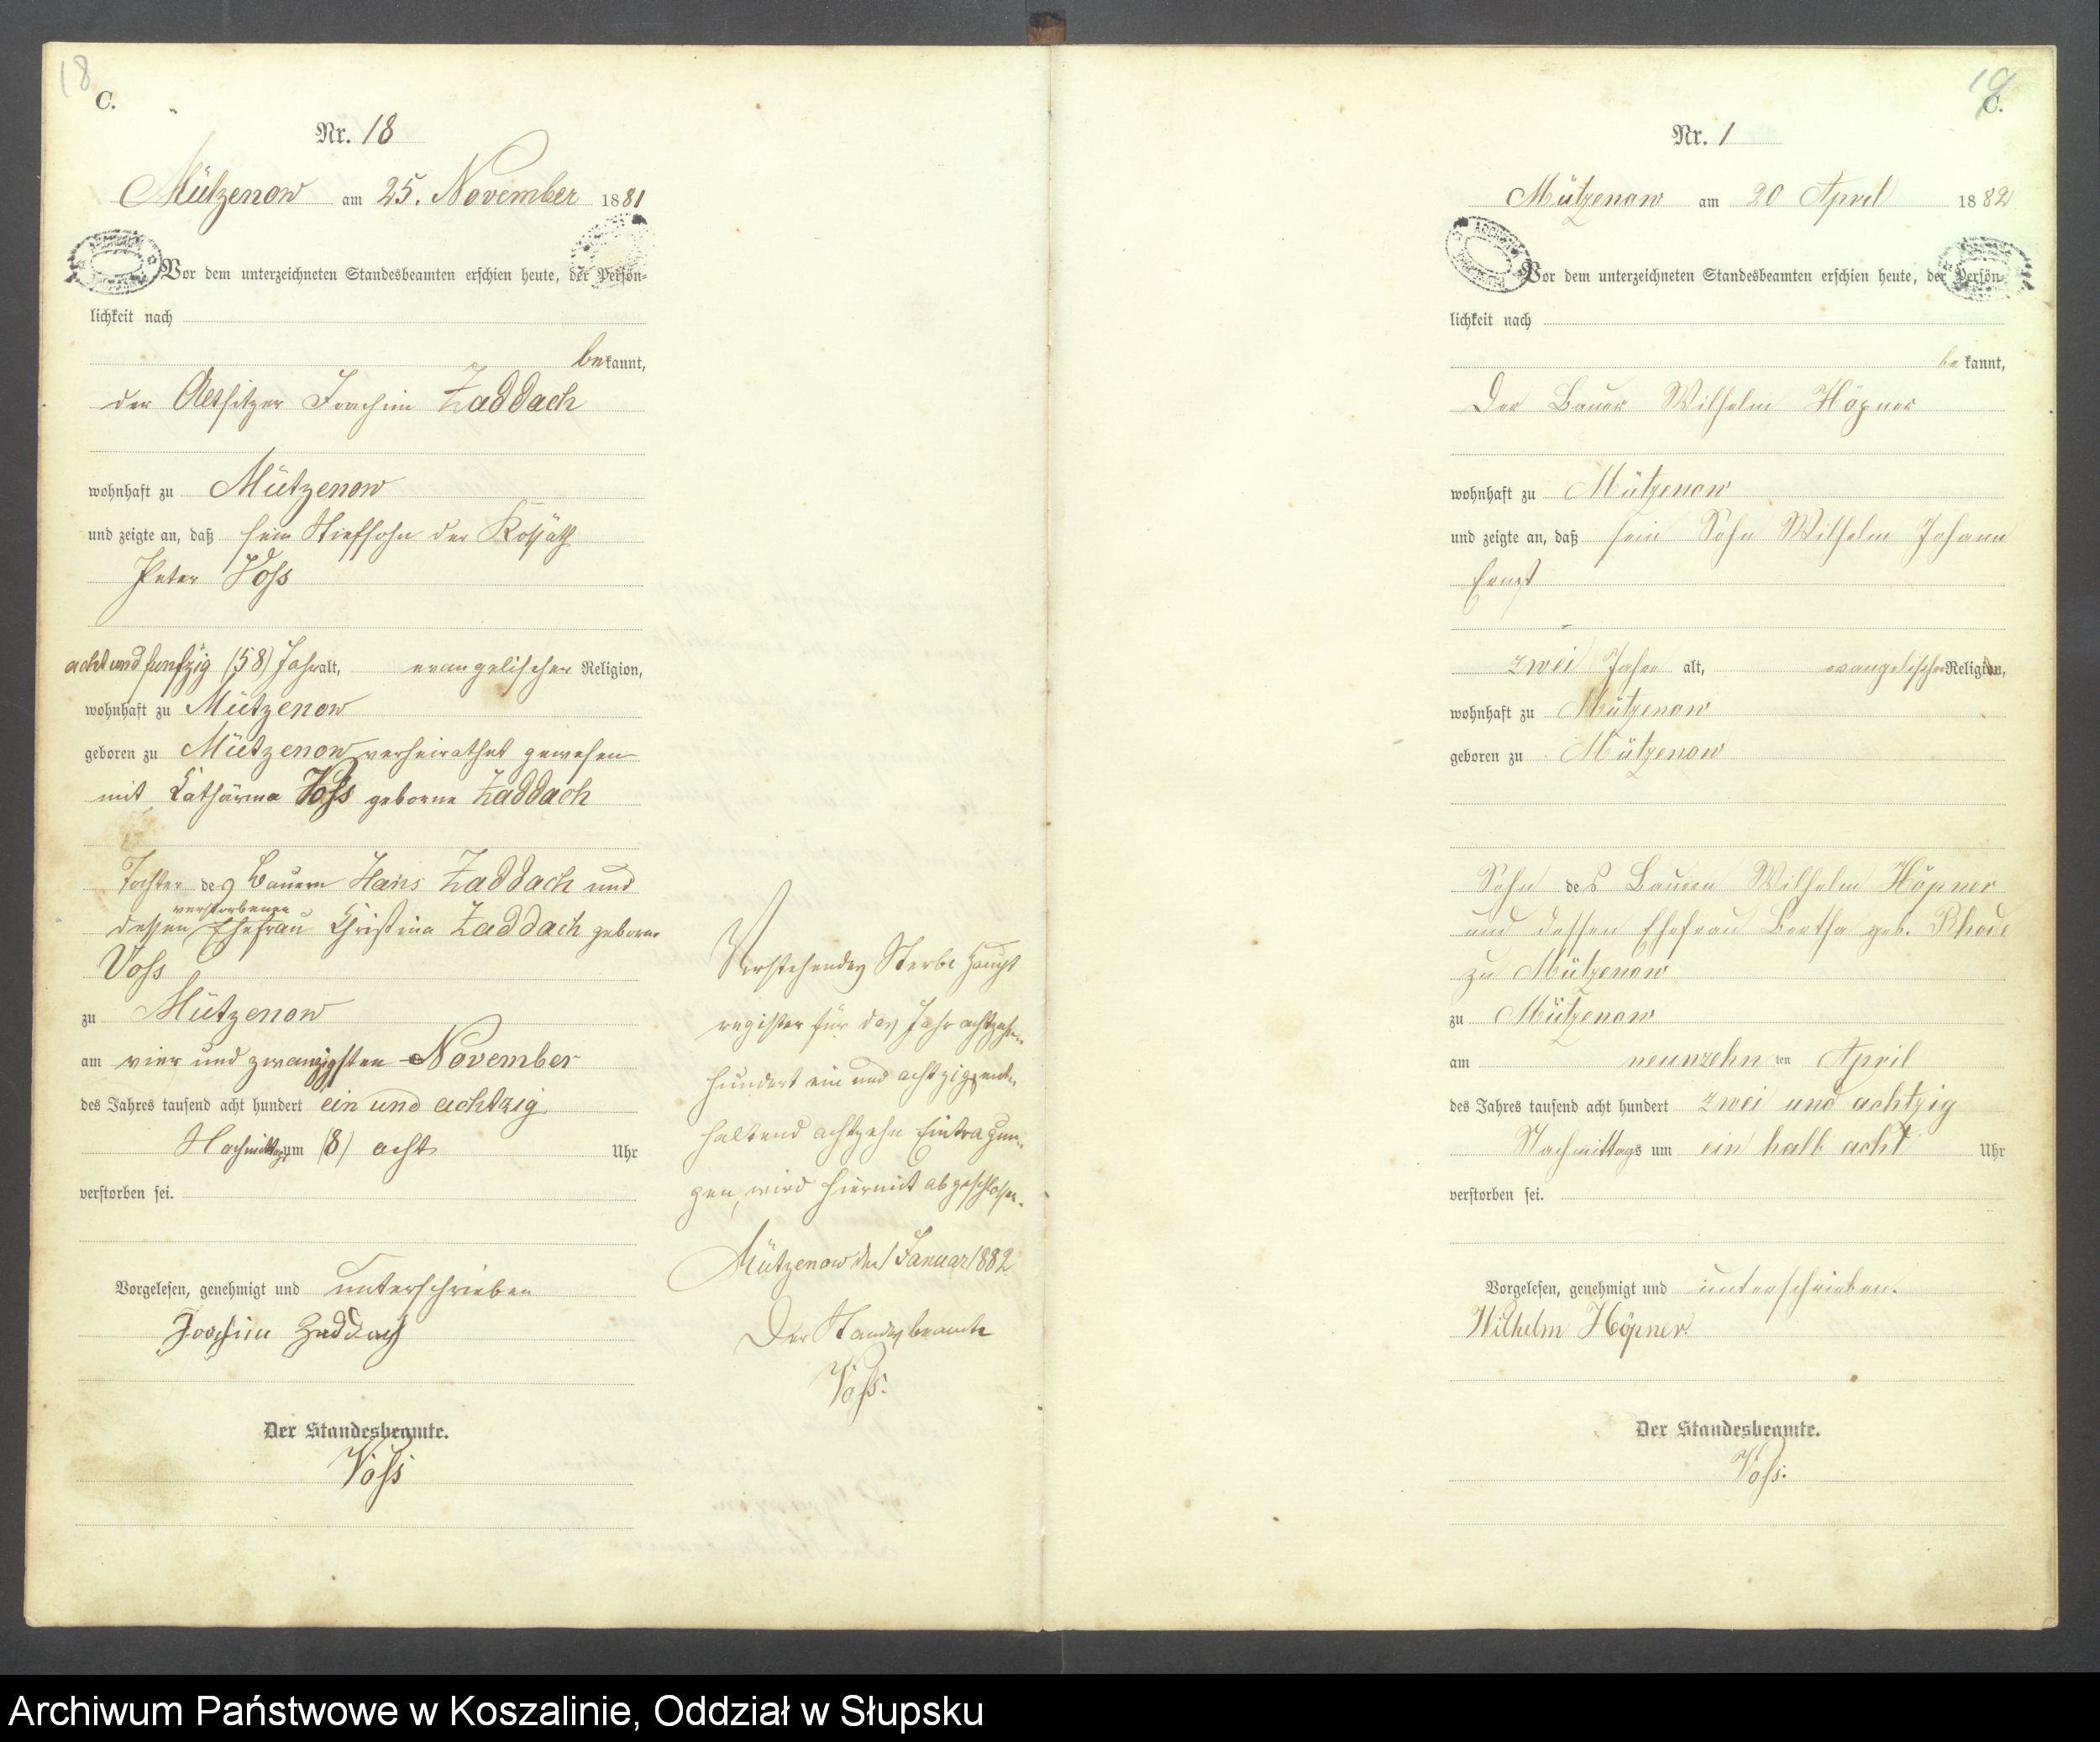 18
C.
Nr. 18
Mützenow am 25. November 1881
Vor dem unterzeichneten Standesbeamten erschien heute, der Persön-
lichkeit nach
bekannt,
der Altsitzer Joachim Zaddach
wohnhaft zu Mützenow
und zeigte an, daß sein Stiefsohn der Kossäth
Peter Voss
acht und funfzig (58) Jahr alt, evangelischer Religion,
wohnhaft zu Mützenow
geboren zu Mützenow, verheirathet gewesen
mit Catharina Voss geborne Zaddach
Tochter des Bauern Hans Zaddach und
verstorbenen
dessen Ehefrau Christina Zaddach geborne
Voss
zu Mützenow
am vier und zwanzigsten November
des Jahres tausend acht hundert ein und achtzig
Nachmittags um (8) acht Uhr
verstorben sei.
Vorgelesen, genehmigt und unterschrieben
Joachim Zaddach
Der Standesbeamte.
Voss
Vorstehendes Sterbe Haupt
register für das Jahr achtzehn-
hundert ein und achtzig, ent-
haltend achtzehn Eintragun-
gen, wird hiermit abgeschlossen.
Mützenow den 1 Januar 1882
Der Standesbeamte
Voss.
19
C.
Nr. 1
Mützenow am 20 April 1882
Vor dem unterzeichneten Standesbeamten erschien heute, der Persön-
lichkeit nach
bekannt,
Der Bauer Wilhelm Höpner
wohnhaft zu Mützenow
und zeigte an, daß sein Sohn Wilhelm Johann
Ernst
zwei Jahr alt, evangelischer Religion,
wohnhaft zu Mützenow
geboren zu Mützenow
Sohn des Bauern Wilhelm Höpner
und dessen Ehefrau Bertha geb. Rhode
zu Mützenow
zu Mützenow
am neunzehn ten April
des Jahres tausend acht hundert zwei und achtzig
Nachmittags um ein halb acht Uhr
verstorben sei.
Vorgelesen, genehmigt und unterschrieben.
Wilhelm Höpner.
Der Standesbeamte.
Voss.
Archiwum Państwowe w Koszalinie, Oddział w Słupsku